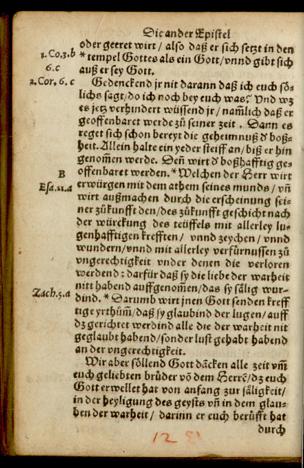 Die ander Epistel
oder geeret wirt / also daß er sich setzt in den
1.Co.3.b
*tempel Gottes als ein Gott / vnnd gibt sich
6.c
auß er sey Gott.
2.Cor.6.c
Gedenckend jr nit darann daß ich euch söl-
lichs sagt / do ich noch bey euch was? Vnd wz
es jetz verhindert wüssend jr / namlich daß er
geoffenbaret werde zů seiner zeit. Dann es
reget sich schon bereyt die geheimnuß d'boß-
heit. Allein halte ein yeder steiff an / biß er hin
genom̃en werde. Deñ wirt d'boßhafftig ge-
B
offenbaret werden. *Welchen der Herr wirt
Esa.11.a
erwürgen mit dem athem seines munds / vñ
wirt außmachen durch die erscheinung sei-
ner zůkunfft den / des zůkunfft geschicht nach
der würckung des teüfels mit allerley lu-
genhafftigen krefften / vnnd zeychen / vnnd
wundern / vnnd mit allerley verfürnussen zů
vngerechtigkeit vnder denen die verloren
werdend: darfür daß sy die liebe der warheit
nit habend auffgenom̃en / das sy sälig wur-
Zach.5.a
dind. * Darumb wirt jnen Gott senden kreff
tige yrthům̃ / daß sy glaubind der lugen / auff
dz gerichtet werdind alle die der warheit nit
geglaubt habend / sonder lust gehabt habend
an der vngerechtigkeit.
Wir aber söllend Gott dācken alle zeit vm̃
euch geliebten brüder vō dem Herrē / dz euch
Gott erwellet hat von anfang zur säligkeit /
in der heyligung des geysts vñ in dem glau-
ben der warheit / darinn er euch berüfft hat
durch